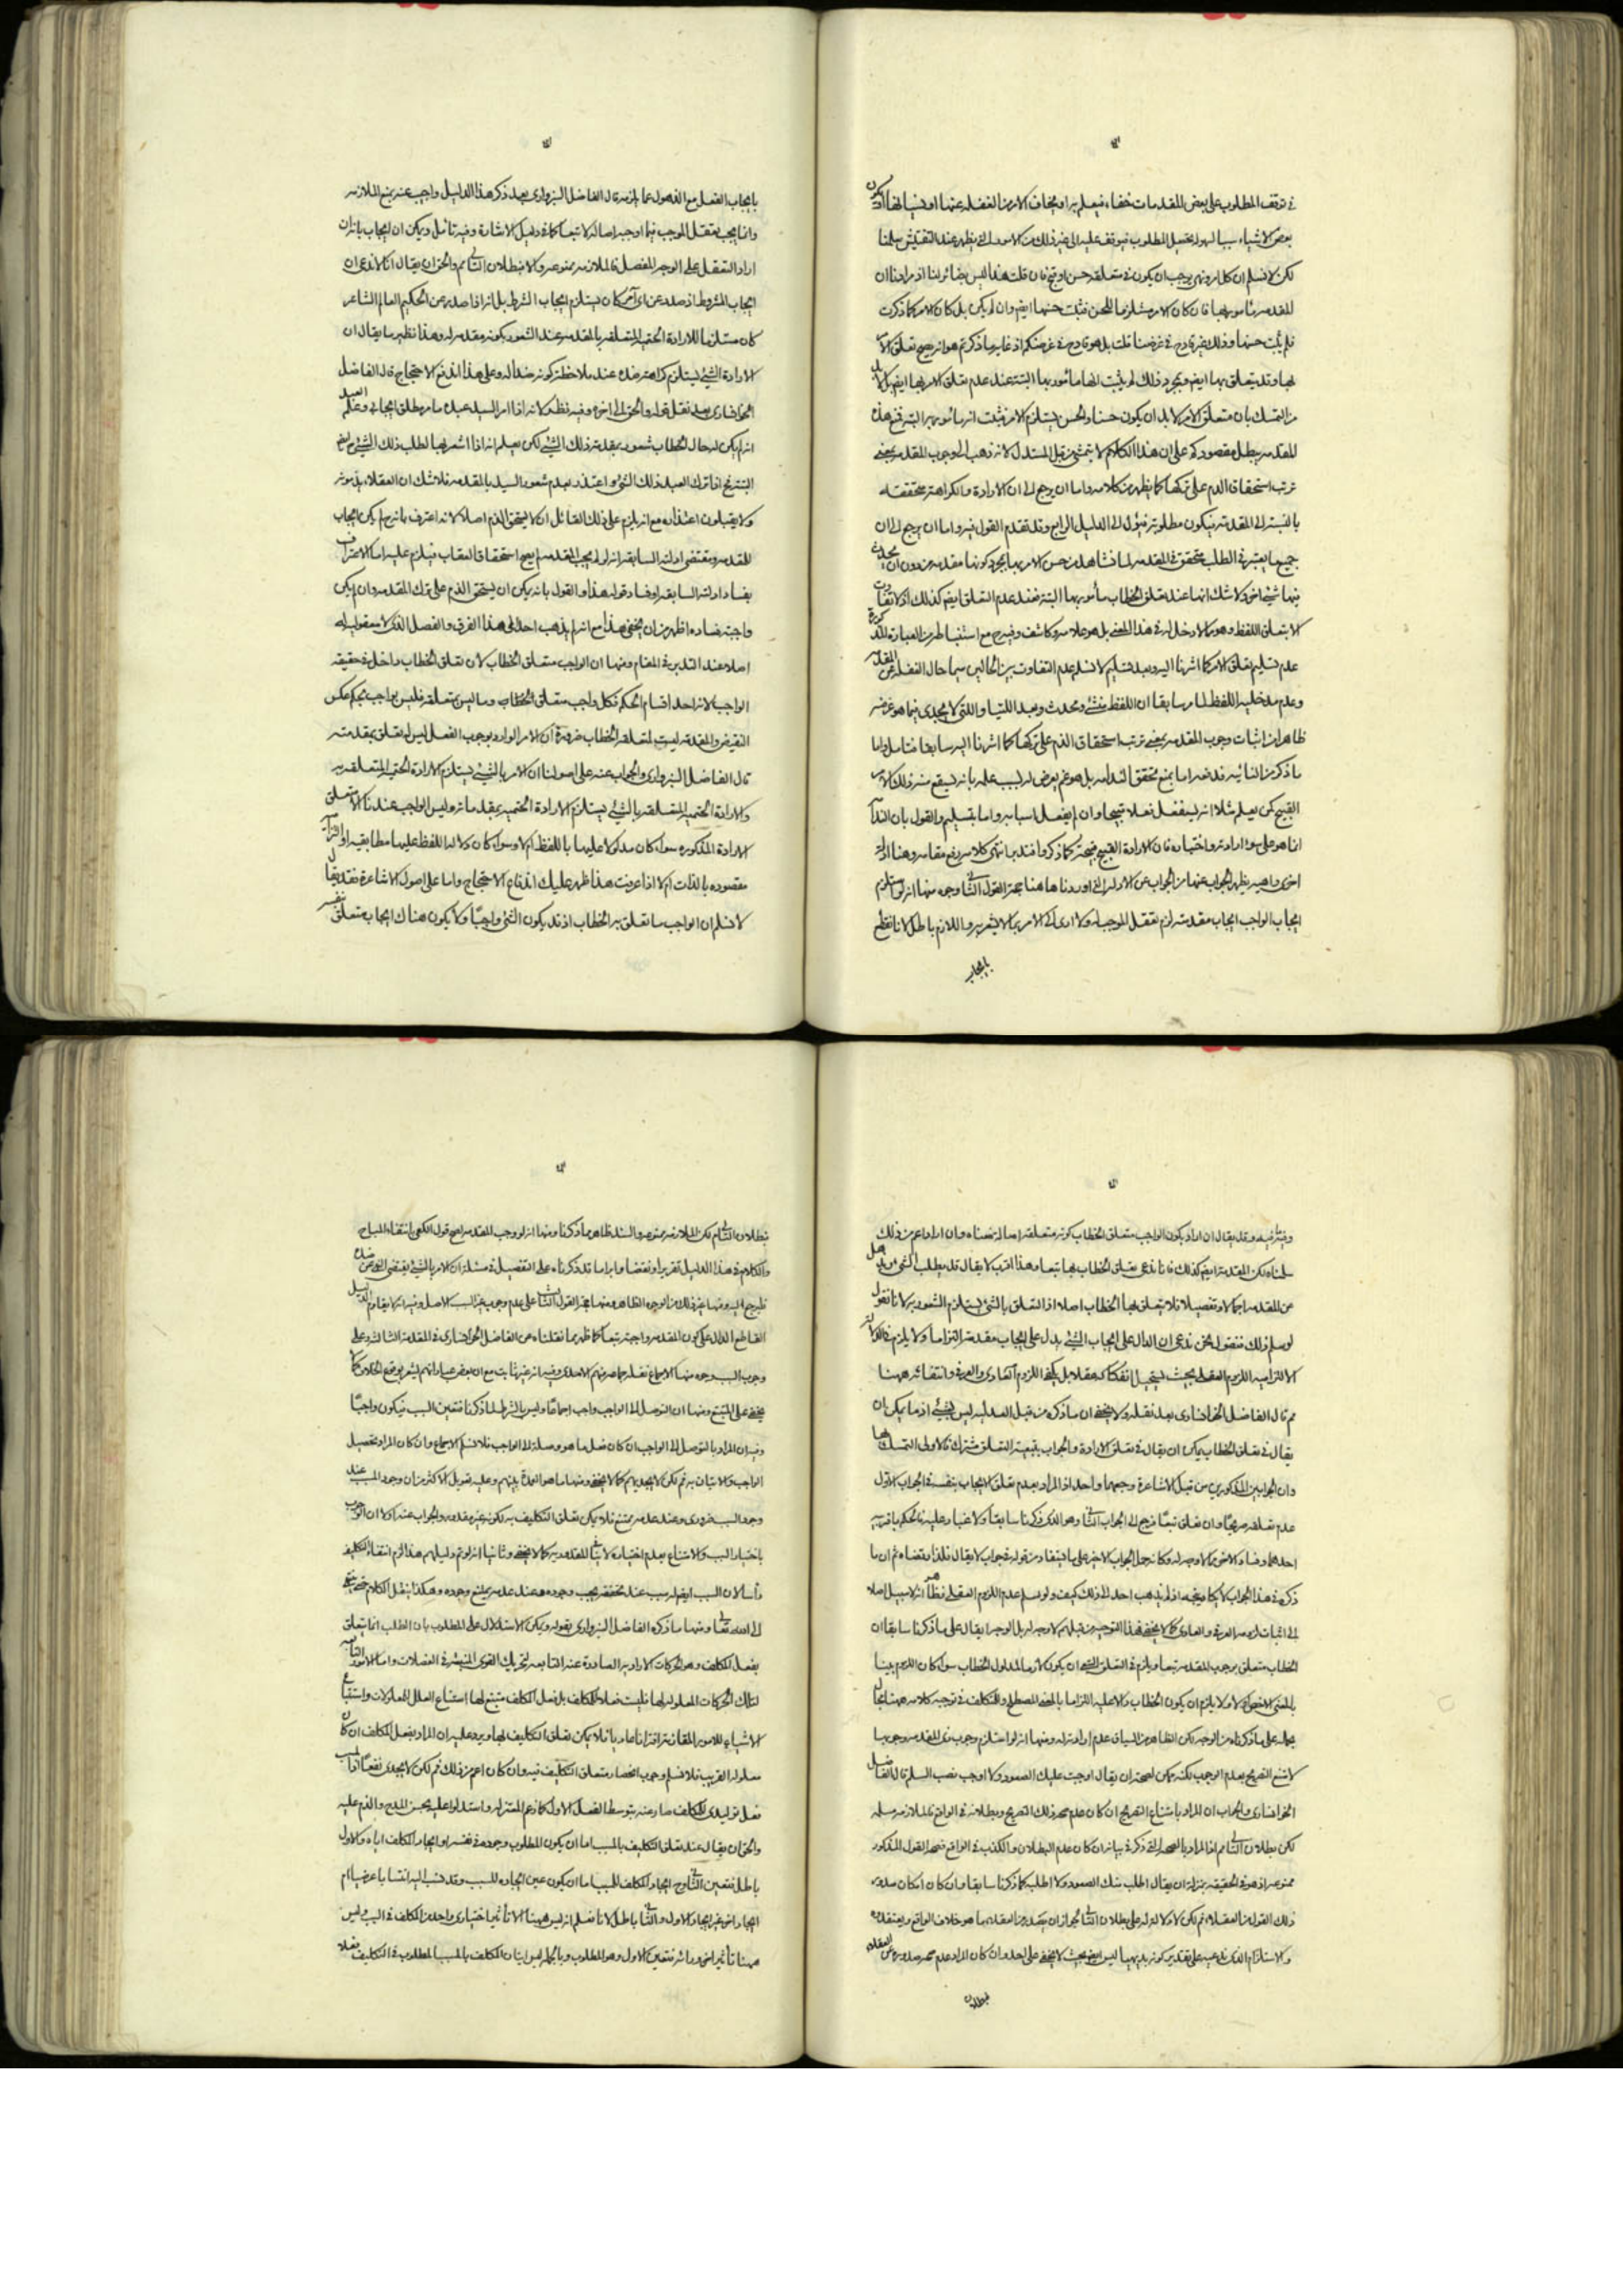 في توقف المطلوب على بعض المقدمات خفاء فيعلم به او يخاف الامر من الغفلة عنها او نسيانها او يكون
بعض الاشياء سببا لسهولة تحصيل المطلوب فيوقف عليه الى غير ذلك من الامور التي يظهر عند التفتيش سلمنا
لكن لا نسلم ان كل امر ونهي يجب ان يكون في متعلقه حسن او قبح فان قلت هذا ليس بضائر لنا اذ مرادنا ان
المقدمة مامور بها فان كان الامر مستلزما للحسن فثبت حسنها ايضم وان لم يكن بل كان الامر كما ذكرت
فلم يثبت حسنها وذلك غير قادح في غرضنا قلت بل هو قادح في غرضكم اذ غاية ما ذكرتم هو انه يصح تعلق الامر
بها وقد يتعلق بها ايضم وبمجرد ذلك لم يثبت انها مامور بها البتة عند عدم تعلق الامر بها ايضم بل لا بد
من التمسك بان متعلق الامر لا بد ان يكون حسنا والحسن يستلزم الامر فثبت انه مامور به البتة فمنع هذه
المقدمة يبطل مقصودكم على ان هذا الكلام لا يتمشى من قبل المستدل لانه ذهب الى وجوب المقدمة بمعنى
ترتب استحقاق الذم على تركها كما يظهر من كلامه واما ان يرجع الى ان الارادة والكراهة متحققة
بالنسبة الى المقدمة فيكون مطلوبة فيؤل الى الدليل الرابع وقد تقدم القول فيه واما ان يرجع الى ان
جميع ما يعتبر في الطلب متحقق في المقدمة لما نشاهد من حسن الامر بها بمجرد كونها مقدمة من دون ان يحدث
فيها شيء اخر ولا شك انها عند تعلق الخطاب مأمور بها البتة فعند عدم التعلق ايضم كذلك اذ لا تفاوت
الا بتعلق اللفظ وهو مما لا دخل له في هذا المعنى بل هو علامة وكاشف وفيه مع استنباطه من العبارة المذكورة
عدم تسليم تعلق الامر كما اشرنا اليه وبعد تسليم لا نسلم عدم التفاوت بين الحالين سيما حال الغفلة عن المقدمة
وعدم مدخلية اللفظ لما مر سابقا ان اللفظ منشئ ومحدث وبعد اللتيا واللتي لا يجدي فيما هو غرضه
ظاهرا من اثبات وجوب المقدمة بمعنى ترتب استحقاق الذم على تركها كما اشرنا اليه سابقا فتامل واما
القبيح كمن يعلم مثلا انه ليفعل فعلا قبيحا وان لم يفعل اسبابه واما بتسليم والقول بان الذم
انما هو على سوء ارادته واختياره فان الارادة القبيح قبيحة كما ذكروا فتدبر انتهى كلامه رفع مقامه وهنا ادلة
اخرى واهية يظهر الجواب عنها من الجواب عن الادلة التي اوردناها هنا حجة القول الثا وجوه منها انه لو استلزم
ايجاب الواجب ايجاب مقدمته لزم تعقل الموجب له والا ادى الى الامر بما لا يشعر به واللازم باطل لانا نقطع
بايجاب
بايجاب الفعل مع الذهول عما يلزمه قال الفاضل السبزواري بعد ذكر هذا الدليل واجيب عنه بمنع الملازمة
وانما يجب تعقل الموجب فيما اوجبه اصالة لا تبعا كما في دليل الاشارة وفيه تامل ويمكن ان يجاب بانه ان
اراد التعقل على الوجه المفصل فالملازمة ممنوعة والا فبطلان التالي مم والحق ان يقال انا لا ندعي ان
ايجاب المشروط اذ صدر عن اي آمر كان يستلزم ايجاب الشرط بل انه اذا صدر عن الحكيم العالم الشاعر
كان مستلزما للارادة الحتمية المتعلقة بالمقدمة عند الشعور بكونه مقدمة له وهذا نظير ما يقال ان
الارادة الشيء يستلزم كراهة ضده عند ملاحظة كونه ضدا له وعلى هذا اندفع الاحتجاج قال الفاضل
الخوانساري بعد نقل قوله والحق الى اخره وفيه نظر لانه اذا امر السيد عبده بامر مطلق ايجابي وعلم العبد
انه لم يكن له حال الخطاب شعور بمقدمة ذلك الشيء لكن يعلم انه اذا اشعر بها لطلب ذلك الشيء
البتة فح اذا ترك العبد ذلك الشيء واعتذر بعدم شعور السيد بالمقدمة فلا شك ان العقلاء يذمونه
ولا يقبلون اعتذاره مع انه يلزم على ذلك القائل ان لا يستحق الذم اصلا لانه اعترف بانه ح لم يكن ايجاب
للمقدمة ومقتضى ادلته السابقة انه لو لم يجب المقدمة لم يصح استحقاق العقاب فيلزم عليه اما الاعتراف
بفساد ادلته السابقة او فساد قوله هذا والقول بانه يمكن ان يستحق الذم على ترك المقدمة وان لم يكن
واجبة فساده اظهر من ان يخفى هذا مع انه لم يذهب احد الى هذا الفرق والفصل الذي لا معقول له
اصلا عند التدبر في المقام ومنها ان الواجب متعلق الخطاب لان تعلق الخطاب داخل في حقيقة
الواجب لانه احد اقسام الحكم فكل واجب متعلق الخطاب وما ليس بمتعلقه فليس بواجب بحكم عكس
النقيض والمقدمة ليست لمتعلقة الخطاب ضرورة ان الامر الوارد بوجوب الفعل ليس له تعلق بمقدمته
قال الفاضل السبزواري والجواب عنه على اصولنا ان الامر بالشيء يستلزم الارادة الحتمية المتعلقة به
والارادة الحتمية المتعلقة بالشيء يستلزم الارادة الحتمية بمقدماته وليس الواجب عندنا الا متعلق
الارادة المذكورة سواء كان مدلولا عليها باللفظ ام لا وسواء كان دلالة اللفظ عليها مطابقية او التزامية
مقصوده بالذات ام لا اذا عرفت هذا ظهر عليك اندفاع الاحتجاج واما على اصول الاشاعرة فقد يقال
لا نسلم ان الواجب ما تعلق به الخطاب اذ قد يكون الشيء واجبا ولا يكون هناك ايجاب متعلق بنفسه
وفيه ما فيه وقد يقال ان اراد بكون الواجب متعلق الخطاب كونه متعلقه اصالة منعناه وان اراد اعم من ذلك
سلمناه لكن المقدمة ايضم كذلك فانا ندعي تعلق الخطاب بها تبعا وهذا اقرب لا يقال قد يطلب الشيء من يذهل
عن المقدمة اجمالا وتفصيلا فلا يتعلق بها الخطاب اصلا اذ التعلق بالشيء يستلزم الشعور به لانا نقول
لو سلم ذلك فنقول نحن ندعي ان الدال على ايجاب الشيء يدل على ايجاب مقدمته التزاما ولا يلزم في الدلالة
الالتزامية اللزوم العقلي بحيث يستحيل انفكاكه عقلا بل يكفي اللزوم العادي والعرفي وانتفائه ههنا
مم قال الفاضل الخوانساري بعد نقله ولا يخفى ان ما ذكره من قبل العدلية ليس بشيء اذ ما يمكن ان
يقال في تعلق الخطاب يمكن ان يقال في تعلق الارادة والجواب بتبعية التعلق مشترك فالاولى التمسك بها
وان الجوابين المذكورين من قبل الاشاعرة وجهها واحد اذ المراد بعدم تعلق الايجاب بنفسه في الجواب الاول
عدم تعلقه صريحا وان تعلق تبعا فرجع الى الجواب الثاني وهو الذي ذكرنا سابقا ولا غبار عليه فالحكم باقربية
ذكره في هذا الجواب لا يكاد يتجه اذ لم يذهب احد الى ذلك كيف ولو سلم عدم اللزوم العقلي فظاهر انه لا سبيل اصلا
الى اثبات لزومه العرفي والعادي كما لا يخفى فهذا التوجيه من قبلهم لا وجه له بل الوجه ان يقال على ما ذكرنا سابقا ان
الخطاب متعلق بوجوب المقدمة تبعا ويلزم في التعلق التبعي ان يكون لازما لمدلول الخطاب سواء كان اللزوم بينا
بالمعنى الاخص او لا ولا يلزم ان يكون الخطاب دالا عليه التزاما بالمعنى المصطلح والتكلف في توجيه كلامه ههنا بما
يحمله على ما ذكرناه من الوجه لكن الظاهر من السياق عدم ارادته له ومنها انه لو استلزم وجوب ذي المقدمة وجوبها
لامتنع التصريح بعدم الوجوب لكنه يمكن لصحة ان يقال اوجبت عليك الصعود ولا اوجب نصب السلم قال الفاضل
الخوانساري والجواب ان المراد بامتناع التصريح ان كان عدم صحة ذلك التصريح وبطلانه في الواقع فالملازمة مسلمة
لكن بطلان التالي مم اذ المراد بالصحة التي ذكر في بيانه ان كان عدم البطلان والكذب في الواقع فصحة القول المذكور
ممنوعة اذ هو في الحقيقة بمنزلة ان يقال اطلب منك الصعود ولا اطلب كما ذكرنا سابقا وان كان امكان صدور
ذلك القول من العقلاء فمم لكن لا دلالة له على بطلان التالي لجواز ان يصدر من العقلاء ما هو خلاف الواقع ويعتقدونه
والاستلزام الذي ندعيه على تقدير كونه بديهيا ليس ايضم بحيث لا يخفى على احد وان كان المراد عدم صحة صدوره عن العقلاء
فبطلان
فبطلان التالي مم لكن الملازمة ممنوعة والسند ظاهر مما ذكرنا ومنها انه لو وجب المقدمة لصح قول الكعبي بانتفاء المباح
والكلام في هذا الدليل تقريرا ونقضا وابراما قد ذكرناه على التفصيل في مسئلة ان الامر بالشيء يقتضي النهي عن ضده
فليرجع اليه ومنها غير ذلك من الوجوه الظاهر دفعها حجة القول الثالث على عدم وجوب غير السبب الاصل وفيه انه لا يقاوم الدليل
القاطع الدال على كون المقدمة واجبة تبعا كما ظهر بما نقلناه من الفاضل الخوانساري في المقدمة الثالثة وعلى
وجوب السبب وجوه منها الاجماع نقله جماعة منهم الامدي وفيه انه غير ثابت مع ان بعض عباراتهم يشعر بوقوع الخلاف كما
يخفى على المتتبع ومنها ان التوصل الى الواجب واجب اجماعا وليس بالشرط لما ذكرنا فتعين السبب فيكون واجبا
وفيه ان المراد بالتوصل الى الواجب ان كان فعل ما هو وصلة الى الواجب فلا نسلم الاجماع وان كان المراد تحصيل
الواجب والاتيان به فمم لكن لا يجديهم كما لا يخفى ومنها ما هو العمدة بينهم وعليه تعويل الاكثر من ان وجود المسبب عند
وجود السبب ضروري وعند عدمه ممتنع فلا يمكن تعلق التكليف به لكونه غير مقدور والجواب عنه اولا ان الوجوب
باختيار السبب والامتناع بعدم اختياره لا ينافي المقدورية كما لا يخفى وثانيا انه لو تم دليلهم هذا لزم انتفاء التكليف
رأسا لان السبب ايضم له سبب عند تحققه يجب وجوده وعند عدمه يمتنع وجوده وهكذا ينقل الكلام حتى ينتهي
الى الله تعالى ومنها ما ذكره الفاضل السبزواري بقوله ويمكن الاستدلال على المطلوب بان الطلب انما يتعلق
بفعل المكلف وهو الحركات الارادية الصادرة عنه التابعة لتحريك القوى المنبثة في العضلات واما الامور التابعة
لتلك الحركات المعلولة لها فليست فعلا للمكلف بل فعل المكلف مستتبع لها استتباع العلل للمعلولات واستتباع
الاشياء للامور المقارنة اقترانا عاديا فلا يمكن تعلق التكليف بها ويرد عليه ان المراد بفعل المكلف ان كان
معلوله القريب فلا نسلم وجوب انحصار متعلق التكليف فيه وان كان اعم من ذلك فمم لكن لا يجدى نفعا اذ المسبب
فعل توليدي للمكلف صادر عنه بتوسط الفعل الاول كما زعم المعتزلة واستدلوا عليه بحسن المدح والذم عليه
والحق ان يقال عند تعلق التكليف بالمسبب اما ان يكون المطلوب وجوده في نفسه او ايجاد المكلف اياه والاول
باطل فتعين الثاني وح ايجاد المكلف للمسبب اما ان يكون عين ايجاده للسبب وقد نسب اليه انتسابا عرضيا ام
ايجاد اخر غير ايجاده الاول والثاني باطل لانا نعلم انه ليس ههنا الا تأثير اختياري واحد من المكلف في السبب وليس
ههنا تأثير اخر وراءه فتعين الاول وهو المطلوب وبالجملة ليس اتيان المكلف بالمسبب المطلوب في التكليف فعلا